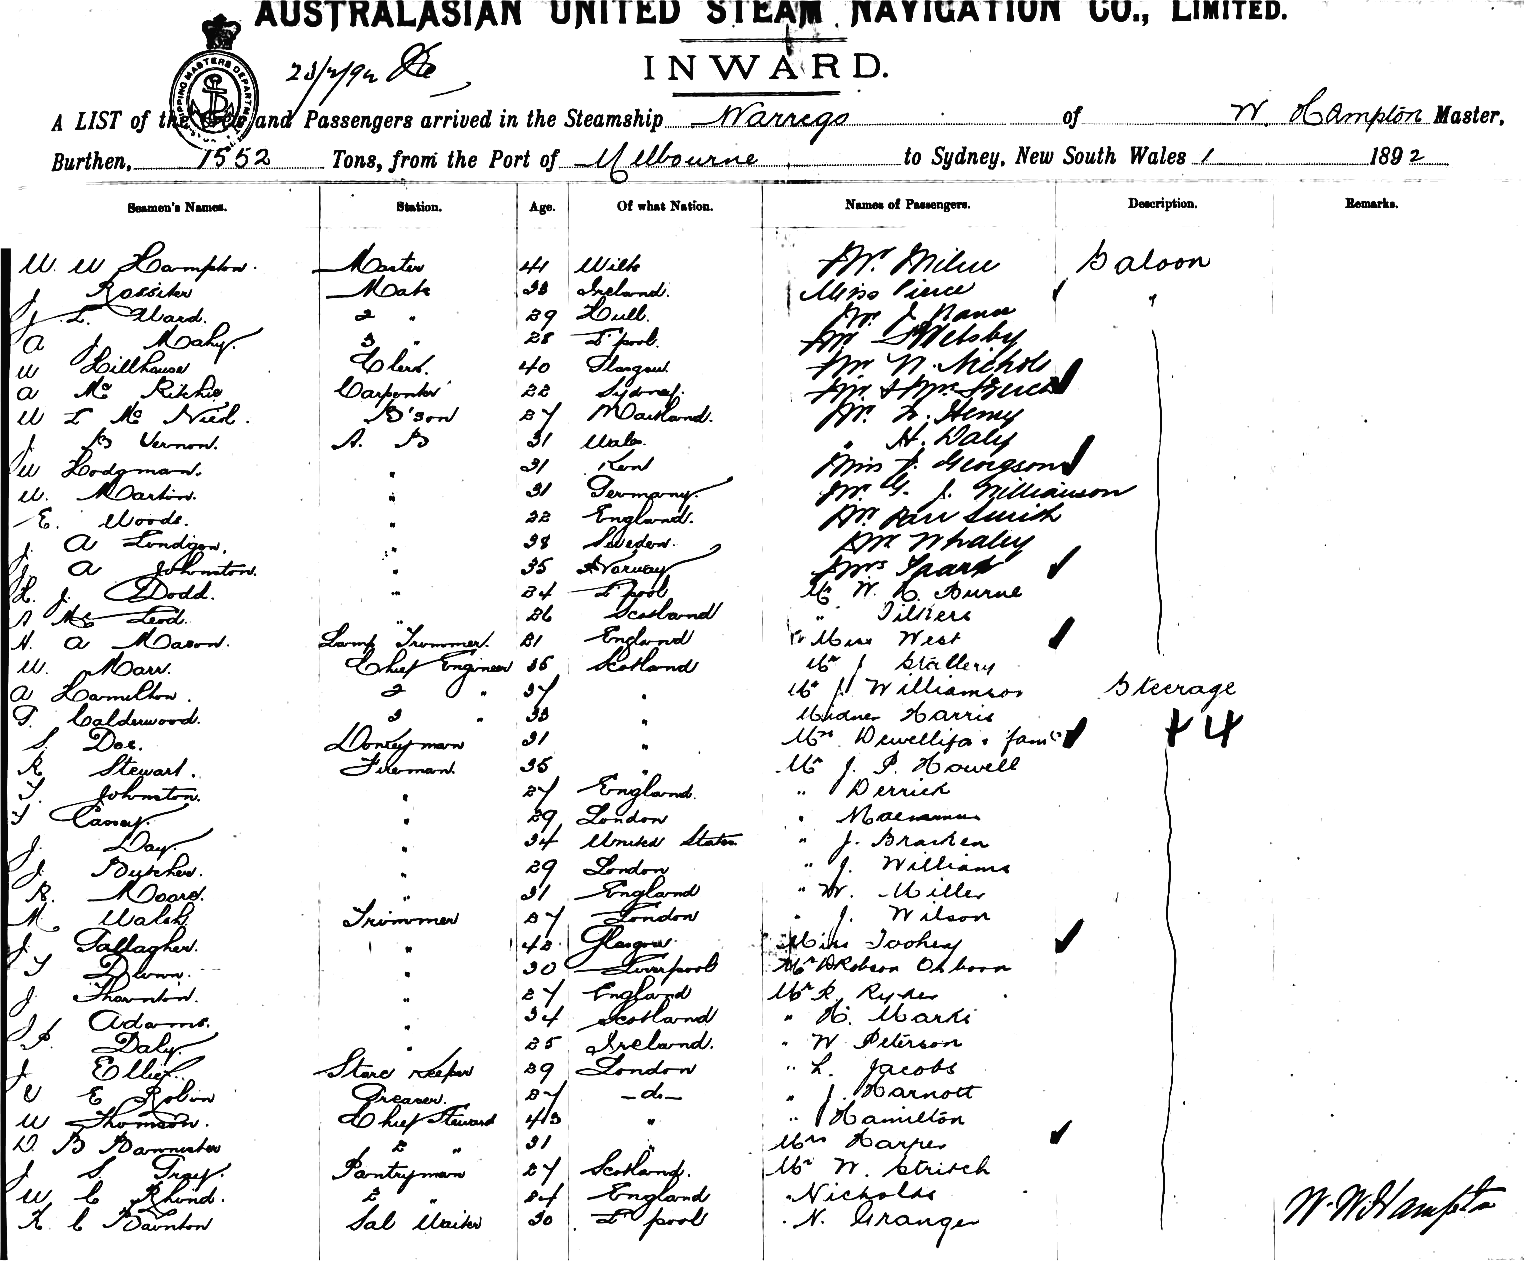 AUSTRALASIAN UNITED STEAM NAVIGATION CO., LIMITED.
INWARD.
A LIST of the and Passengers arrived in the Steamship Warrego of W. Hampton Master,
Burthen, 1552 Tons, from the Port of Melbourne to Sydney, New South Wales 1892
Seamen's Names. Station. Age. Of what Nation. Names of Passengers. Description. Remarks.
W W Hampton. Master 41 Wilts Mr. Milne Saloon
J Rossiter Mate 33 Ireland. Miss Pierce "
J. L. Ward. 2 " 29 Hull. Mr. J Nann
A J Mahy. 3 " 28 L'pool. Mr Welsby
W Hillhouse Clerk. 40 Glasgow Mr N. Nichols
A Mc Ritchie Carpenter 22 Sydney. Mr & Mrs
W L Mc Neil. B'son 27 Maitland. Mr. L. Henry
J B Vernon. A. B 31 Wales. " H. Daly
W Hodgman. " 31 Kent Miss J. Georgson
W. Martin. " 31 Germany. Mr. G. J. Williamson
E. Woods. " 22 England. Mr. Smith
J. A Lundgon. " 38 Sweden. Mr Whaley
J A Johnston. " 35 Norway Mrs
H. J. Dodd. " 24 L'pool Mr W. H. Burne
Mc Leod. " 26 Scotland " Tilkers
H. A Mason. Lamp Trimmer. 21 England Miss West
W. Marr. Chief Engineer 35 Scotland Mr J Stallery
A Hamilton. 2 " 37 " Mr J. Williamson Steerage
T. Calderwood. 3 " 33 " Harris 44
S. Doe. Donkeyman 31 " Mrs & fam
R Stewart. Fireman. 35 " Mr J. P. Howell
T. Johnston. " 27 England. " Derrick
T Casey. " 29 London "
J. Day " 34 United States " J. Bracken
J. Butcher. " 29 London " J. Williams
R. Moore. " 31 England " W. Miller
M. Walsh Trimmer 27 London " J. Wilson
J. Gallagher. " 42 Glasgow. Miss Toohey
T Dunn. " 30 Liverpool Mr D Robson Osborn
J. Thornton. " 27 England Mr R. Ryder
Adams. " 34 Scotland " H. Marks
J. P. Daly. " 25 Ireland. " W Peterson
J Elliot. Store Keeper 29 London " L. Jacobs
E Robin Greaser. 27 -do- " J. Harnott
W Thomson. Chief Steward 43 " " Hamilton
D. B Bannister 2 " 31 " Mrs Harper
J S Troy. Pantryman 27 Scotland. Mr W. Stritch
W C Rhind. 2 " 24 England " Nicholds
H C Baunton Sal Waiter 30 L'pool " N. Granger
W. W. Hampton